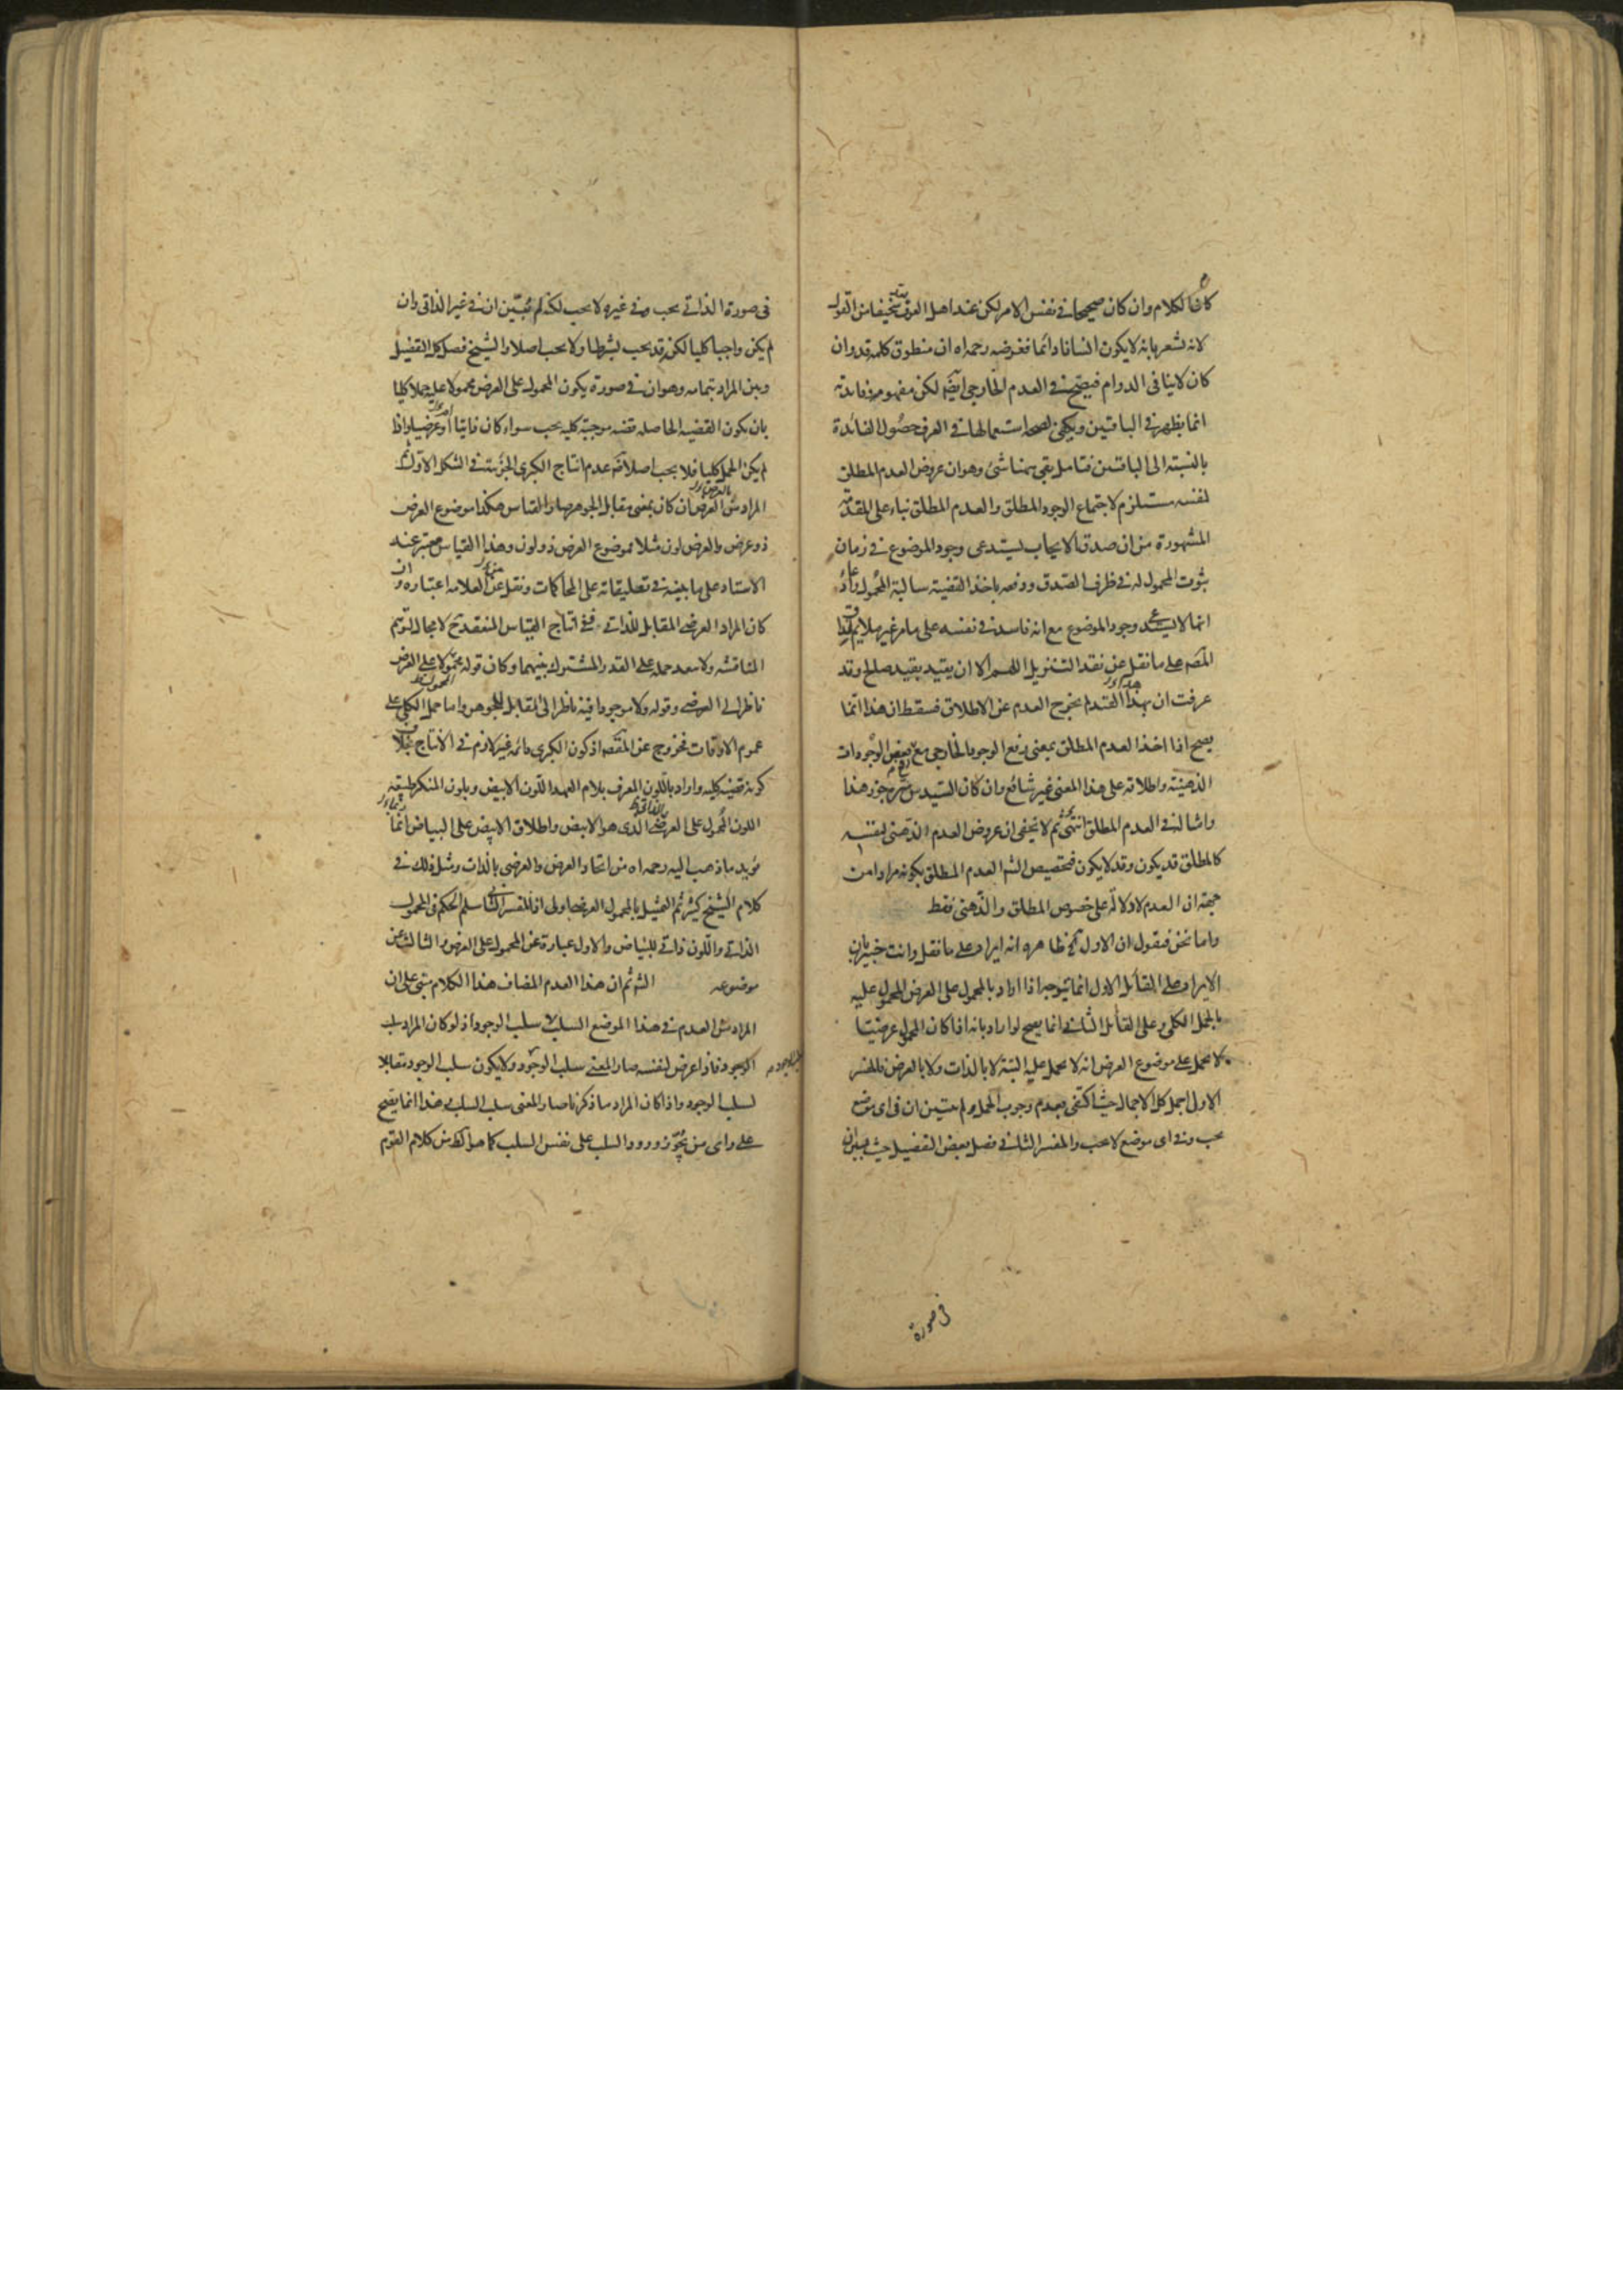 كان الكلام وان كان صحيحا في نفس الامر لكن عند اهل العرف سخيفا من القول
لانه يشعر بانه لا يكون انسانا دائما فغرضه رحمه اه ان منطوق كلمه قد وان
كان لا ينافى الدوام فيصح في العدم الخارجى ايضا لكن مفهومه وفائدته
انما يظهر في الباقيين ويكفى لصحه استعمالها في العرف حصول الفائدة
بالنسبة الى الباقيين فتامل بقى هنا شئ وهو ان عروض العدم المطلق
لنفسه مستلزم لاجتماع الوجود المطلق والعدم المطلق بناء على المقدمة
المشهورة من ان صدق الايجاب يستدعى وجود الموضوع في زمان
ثبوت المحمول له في ظرف الصدق ودفعه باخذ القضية سالبة المحمول وانها
انما لا يستدعى وجود الموضوع مع انه فاسد في نفسه على ما مر غير ملايم
المقصه على ما نقل عن نقد التنزيل اللهم الا ان يقيد بقيد صالح وقد
عرفت ان بهذا القدر لم يخرج العدم عن الاطلاق فسقط ان هذا انما
يصح اذا اخذ العدم المطلق بمعنى رفع الوجود الخارجى مع بعض الوجودات
الذهنية واطلاقه على هذا المعنى غير شائع وان كان السيد س شره جوز هذا
وامثاله في العدم المطلق انتهى ثم لا يخفى ان عروض العدم الذهنى لنفسه
كالمطلق قد يكون وقد لا يكون فتخصيص الشم العدم المطلق بكونه مرادا من
جهة ان العدم لا دلالة على خصوص المطلق والذهنى فقط
واما نحن فنقول ان الاول آلخ ظاهره انه ايراد على ما نقل وانت خبير بان
الايراد على القائل الاول انما يتوجه اذا اراد بالمحمول على العرض المحمول عليه
بالحمل الكلى وعلى القائل الثانى انما يصح لو اراد بانه اذا كان المحمول عرضيتا
لا يحمل على موضوع العرض انه لا يحمل عليه البتة لا بالذات ولا بالعرض فالمفسر
الاول اجمل كل الاجمال حيث اكتفى بعدم وجوب الحمل ولم يتبين ان في اى موضع
يجب وفي اى موضع لا يجب والمفسر الثانى فصل بعض التفصيل حيث بين ان
في صورة
في صورة الذاتى يجب وفي غيره لا يجب لكنه لم يبين ان في غير الذاتى وان
لم يكن واجبا كليا لكن قد يجب بشرطها ولا يجب اصلا والشيخ فصل كل التفصيل
وبين المراد بتمامه وهو ان في صورة يكون المحمول على العرض محمولا عليه حملا كليا
بان يكون القضيه الحاصله قضيه موجبة كليه يجب سواء كان ذاتيا او عرضيا واذا
لم يكن الحمل كليا فلا يجب اصلا لعدم انتاج الكبرى الجزئية في الشكل الاول ثم
المراد من العرض ان كان بمعنى مقابل الجوهر صار القياس هكذا موضوع العرض
ذو عرض والعرض لون مثلا فموضوع العرض ذو لون وهذا القياس معتبر عند
الاستاد على ما بينه في تعليقاته على المحاكمات ونقل عن العلامه اعتباره وان
كان المراد العرضى المقابل للذاتى ففى انتاج القياس المنعقد ح لا مجال لتوهم
المناقشه ولا يبعد حمله على القدر المشترك بينهما وكان قوله محمولا على العرض
ناظرا الى العرضى وقوله ولا موجودا فيه ناظر الى المقابل للجوهر واما حمل الكلى على
عموم الاوقات فخروج عن المقصه اذ كون الكبرى دائمه غير لازم في الانتاج بخلاف
كونه قضيه كليه واراد باللون المعرف بلام العهد اللون الابيض وبلون المنكر طبيعه
اللون المحمول على العرضى الذى هو الابيض واطلاق الابيض على البياض انما
يؤيد ما ذهب اليه رحمه اه من اتحاد العرض والعرضى بالذات ومثل ذلك في
كلام الشيخ كثير ثم التمثيل بالمحمول العرضى اولى اذ المفسر الثانى سلم الحكم في المحمول
الذاتى واللون ذاتى للبياض والاول عبارة عن المحمول على العرض والثالث عن
موضوعه الشم ثم ان هذا العدم المضاف هذا الكلام مبنى على ان
المراد من العدم في هذا الموضع السلب لا سلب الوجود اذ لو كان المراد سلب
الوجود فاذا عرض لنفسه صار المعنى سلب الوجود ولا يكون سلب الوجود مقابلا
لسلب الوجود واذا كان المراد ما ذكرنا صار المعنى سلب السلب وهذا انما يصح
على راى من يجوز ورود السلب على نفس السلب كما هو الظ من كلام القوم